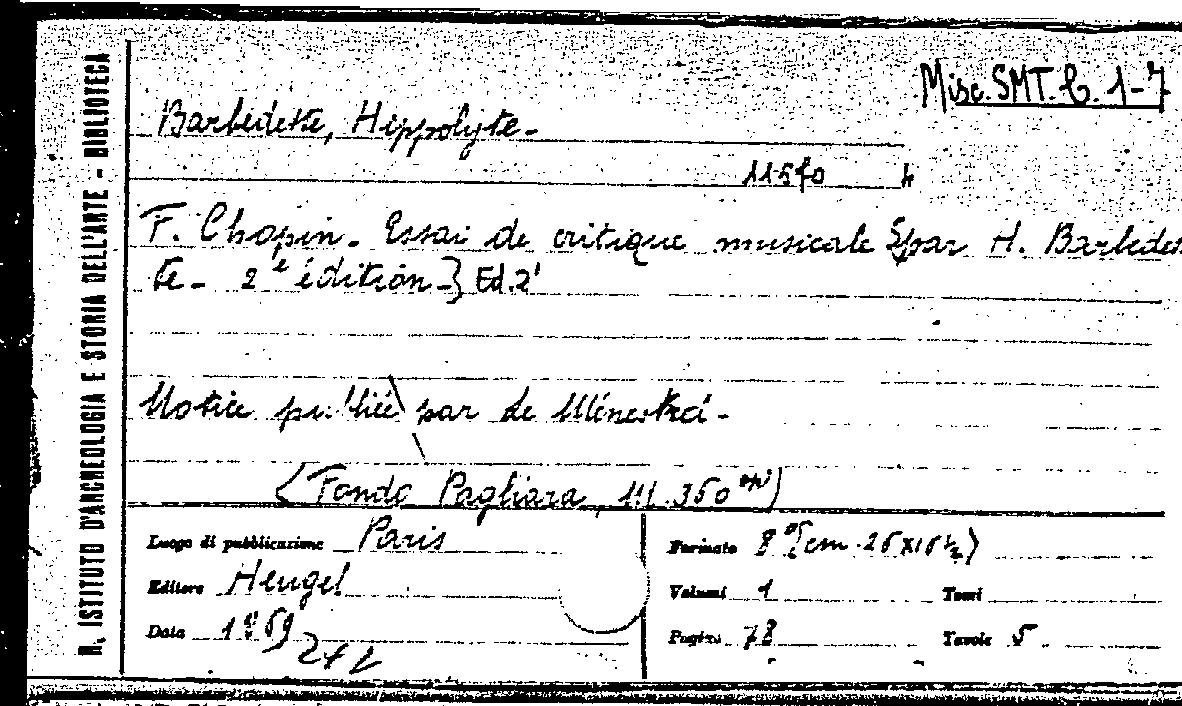 R. ISTITUTO D'ARCHEOLOGIA E STORIA DELL'ARTE - BIBLIOTECA
Misc. SMT. C. 1-7
Barbedette, Hippolyte-
11570 4
F. Chopin. Essai de critique musicale {par H. Barbedet-
te- 2e édition-} Ed. 2'
Notice publiée par de Ménestrel-
(Fondo Pagliara, III. 350
Luogo di pubblicazione Paris
Formato 8° (cm. 25x16½)
Editore Heugel
Volumi 1 Tomi
Data 1869
Pagine 78 Tavole 5